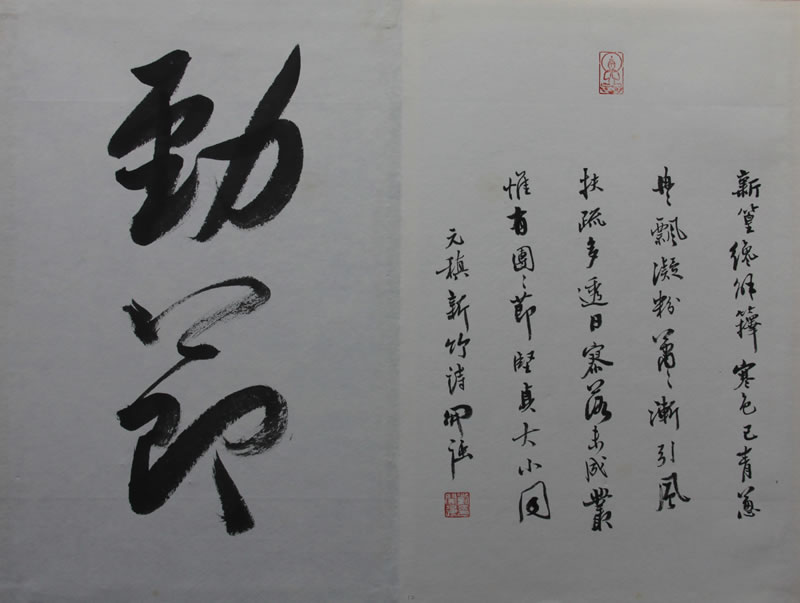 勁節
新篁纔解籜寒色已青蔥
冉〻飄凝粉蕭〻漸引風
扶疏多透日寥落未成叢
惟有團〻節堅貞大小同
元稹新竹詩